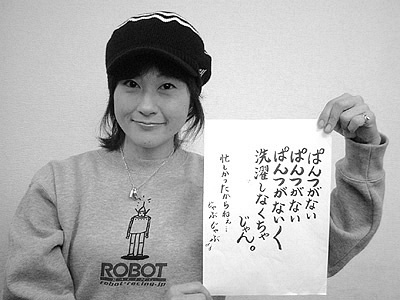 ぱんつがない
ぱんつがない
ぱんつがないく
洗濯しなくちゃ
じゃん。
忙しかったからねぇ…
じゃぶじゃぶ
ROBOT
robot-racing.jp